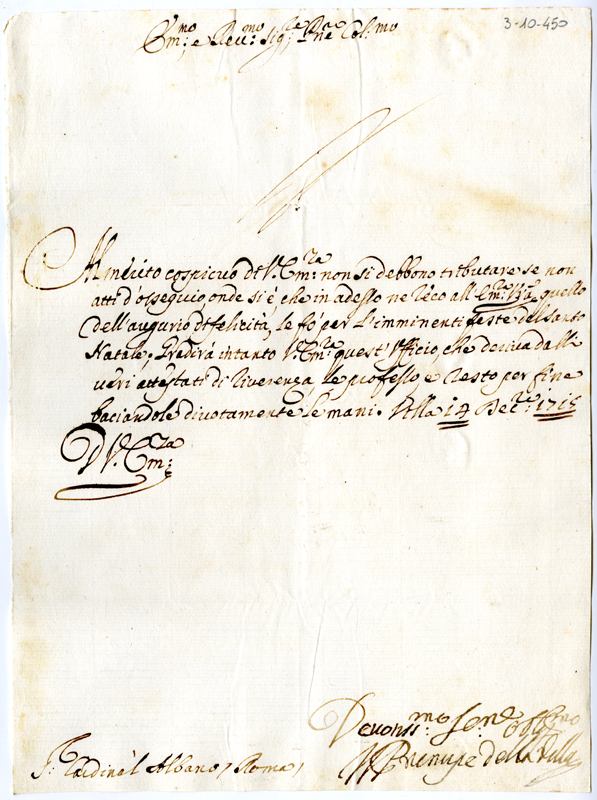 3-10-450
Em:mo e Rev:mo Sig:re P.ne Col:mo
Al merito cospicuo di V: Em:za non si debbono tributare se non
atti d'ossequio, onde si è che in adesso ne reco all' Em:za V:ra quello
dell'augurio di felicità, le fò per l'imminenti feste del Santo
Natale; Gredirà intanto V: Em:za quest'Uffizio, che deriva dalli
veri attestati di riverenza le professo e resto per fine
baciandole divotamente le mani. 14 Dec:re 1715
D V: Em:za
Devotiss:mo Ser:e Obblig:mo
Il Principe della
S:r Cardinal Albano / Roma /